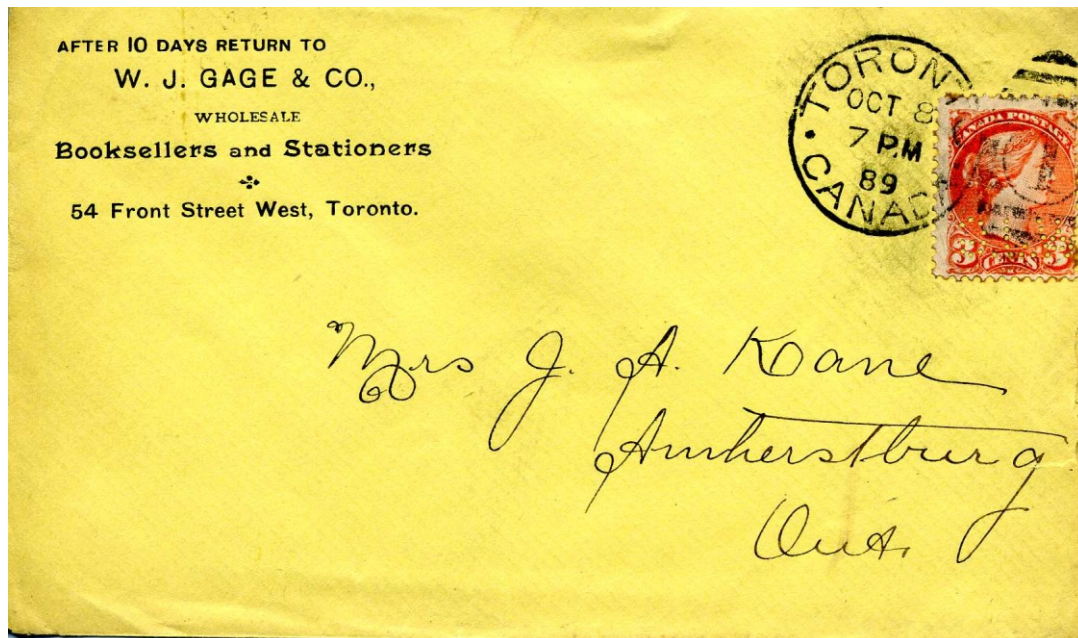 AFTER 10 DAYS RETURN TO
W. J. GAGE & CO.,
WHOLESALE
Booksellers and Stationers
54 Front Street West, Toronto.
TORON
OCT 8
7 PM
89
CANADA
CANADA POSTAGE
3 CENTS 3
Mrs J. A. Kane
Amherstburg
Ont.